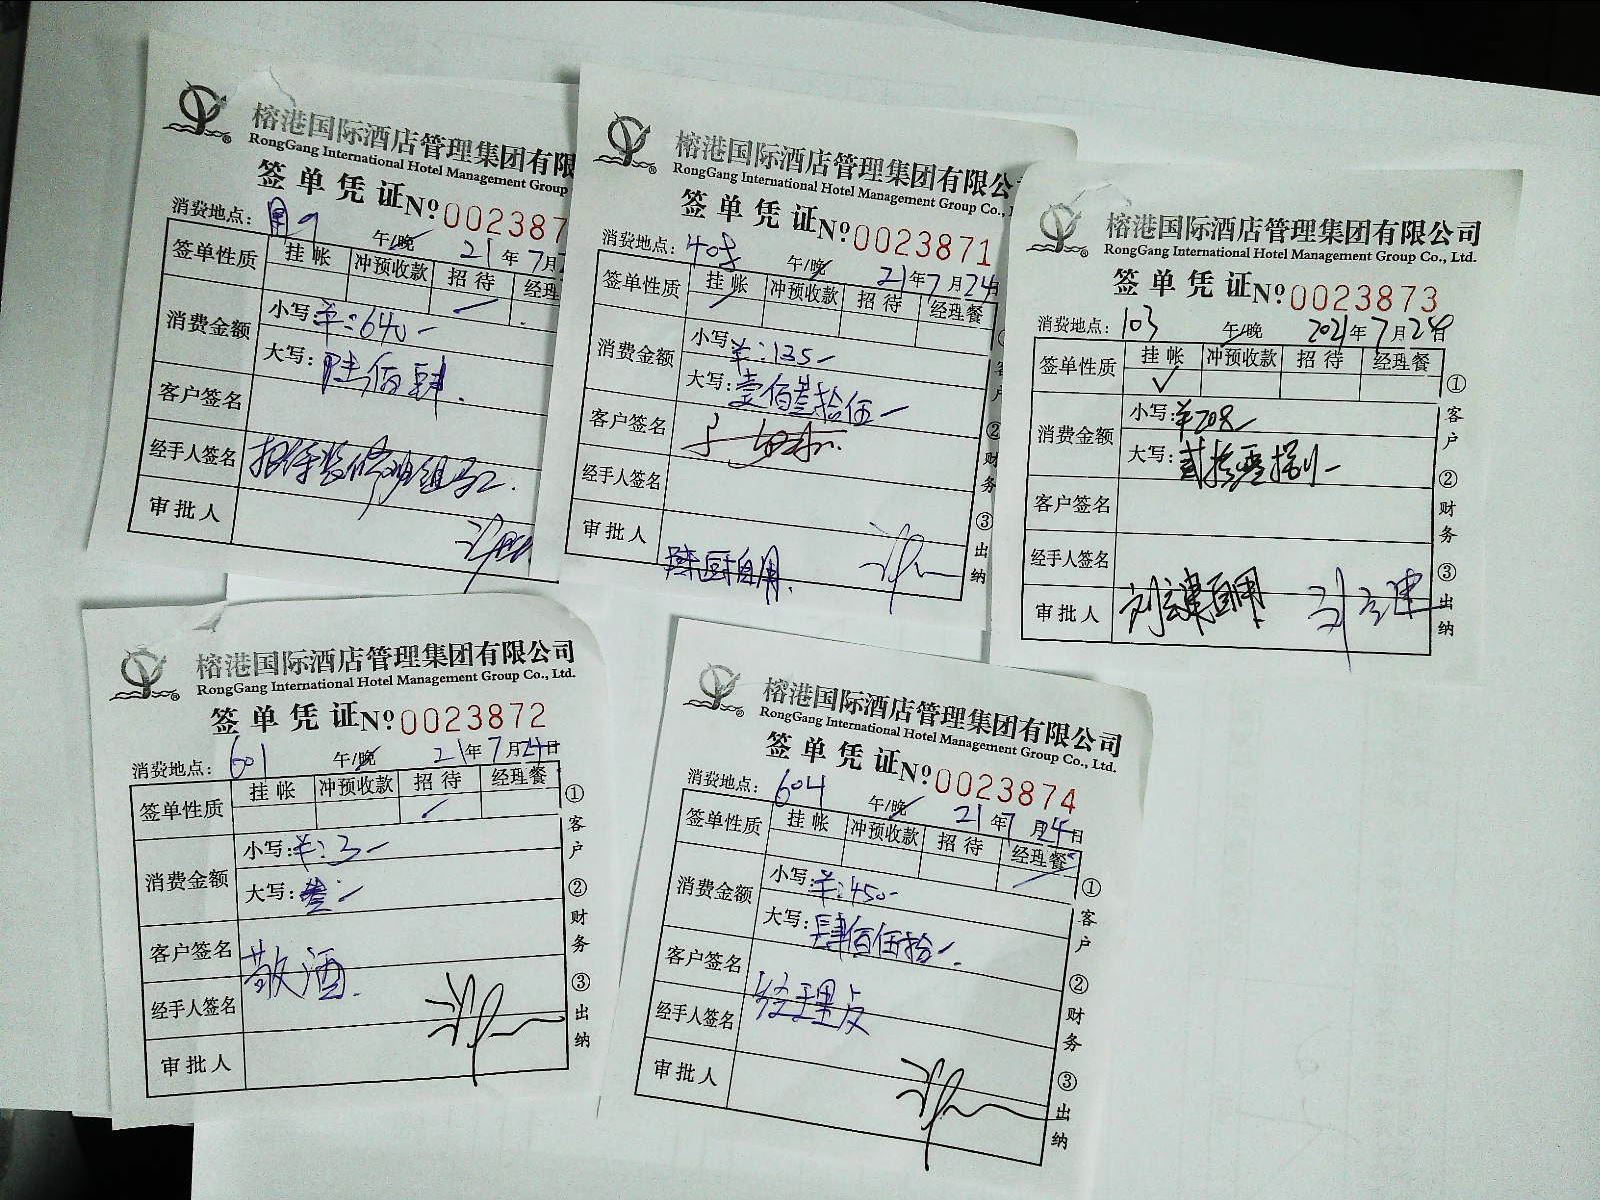 榕港国际酒店管理集团有限
RongGang International Hotel Management Group
签单凭证 Nº 002387
消费地点：
午/晚 21年7月
签单性质 挂帐 冲预收款 招待 经理
消费金额 小写：¥：640-
大写：陆佰肆
客户签名
经手人签名 招待装修班组
审批人
榕港国际酒店管理集团有限公
RongGang International Hotel Management Group Co.,
签单凭证 Nº 0023871
消费地点：408 午/晚 21年7月24日
签单性质 挂帐 冲预收款 招待 经理餐
消费金额 小写：¥：135-
大写：壹佰叁拾伍-
客户签名
经手人签名
审批人 陈厨自用
①客户 ②财务 ③出纳
榕港国际酒店管理集团有限公司
RongGang International Hotel Management Group Co., Ltd.
签单凭证 Nº 0023873
消费地点：103 午/晚 2021年7月24日
签单性质 挂帐 冲预收款 招待 经理餐
✓
消费金额 小写：
大写：
客户签名
经手人签名
审批人 刘立建自用 刘立建
①客户 ②财务 ③出纳
榕港国际酒店管理集团有限公司
RongGang International Hotel Management Group Co., Ltd.
签单凭证 Nº 0023872
消费地点：601 午/晚 21年7月24日
签单性质 挂帐 冲预收款 招待 经理餐
消费金额 小写：¥：3-
大写：叁-
客户签名 敬酒
经手人签名
审批人
①客户 ②财务 ③出纳
榕港国际酒店管理集团有限公司
RongGang International Hotel Management Group Co., Ltd.
签单凭证 Nº 0023874
消费地点：604 午/晚 21年7月24日
签单性质 挂帐 冲预收款 招待 经理餐
消费金额 小写：¥：450-
大写：肆佰伍拾-
客户签名
经手人签名 经理反
审批人
①客户 ②财务 ③出纳